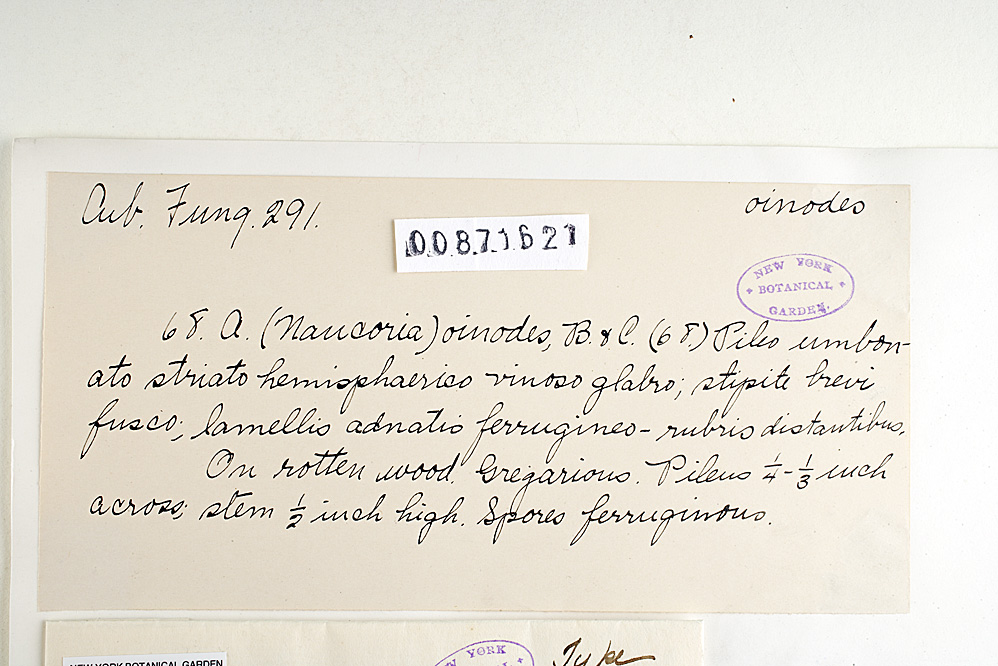 Cub. Fung. 291.
oinodes
00871621
NEW YORK
BOTANICAL
GARDEN.
68. A. (Naucoria) oinodes, B. & C. (68.) Pileo umbon-
ato striato hemisphaerico vinoso glabro; stipite brevi
fusco; lamellis adnatis ferrugineo-rubris distantibus.
On rotten wood. Gregarious. Pileus 1/4-1/3 inch
across; stem 1/2 inch high. Spores ferruginous.
NEW YORK BOTANICAL GARDEN
YORK
Type